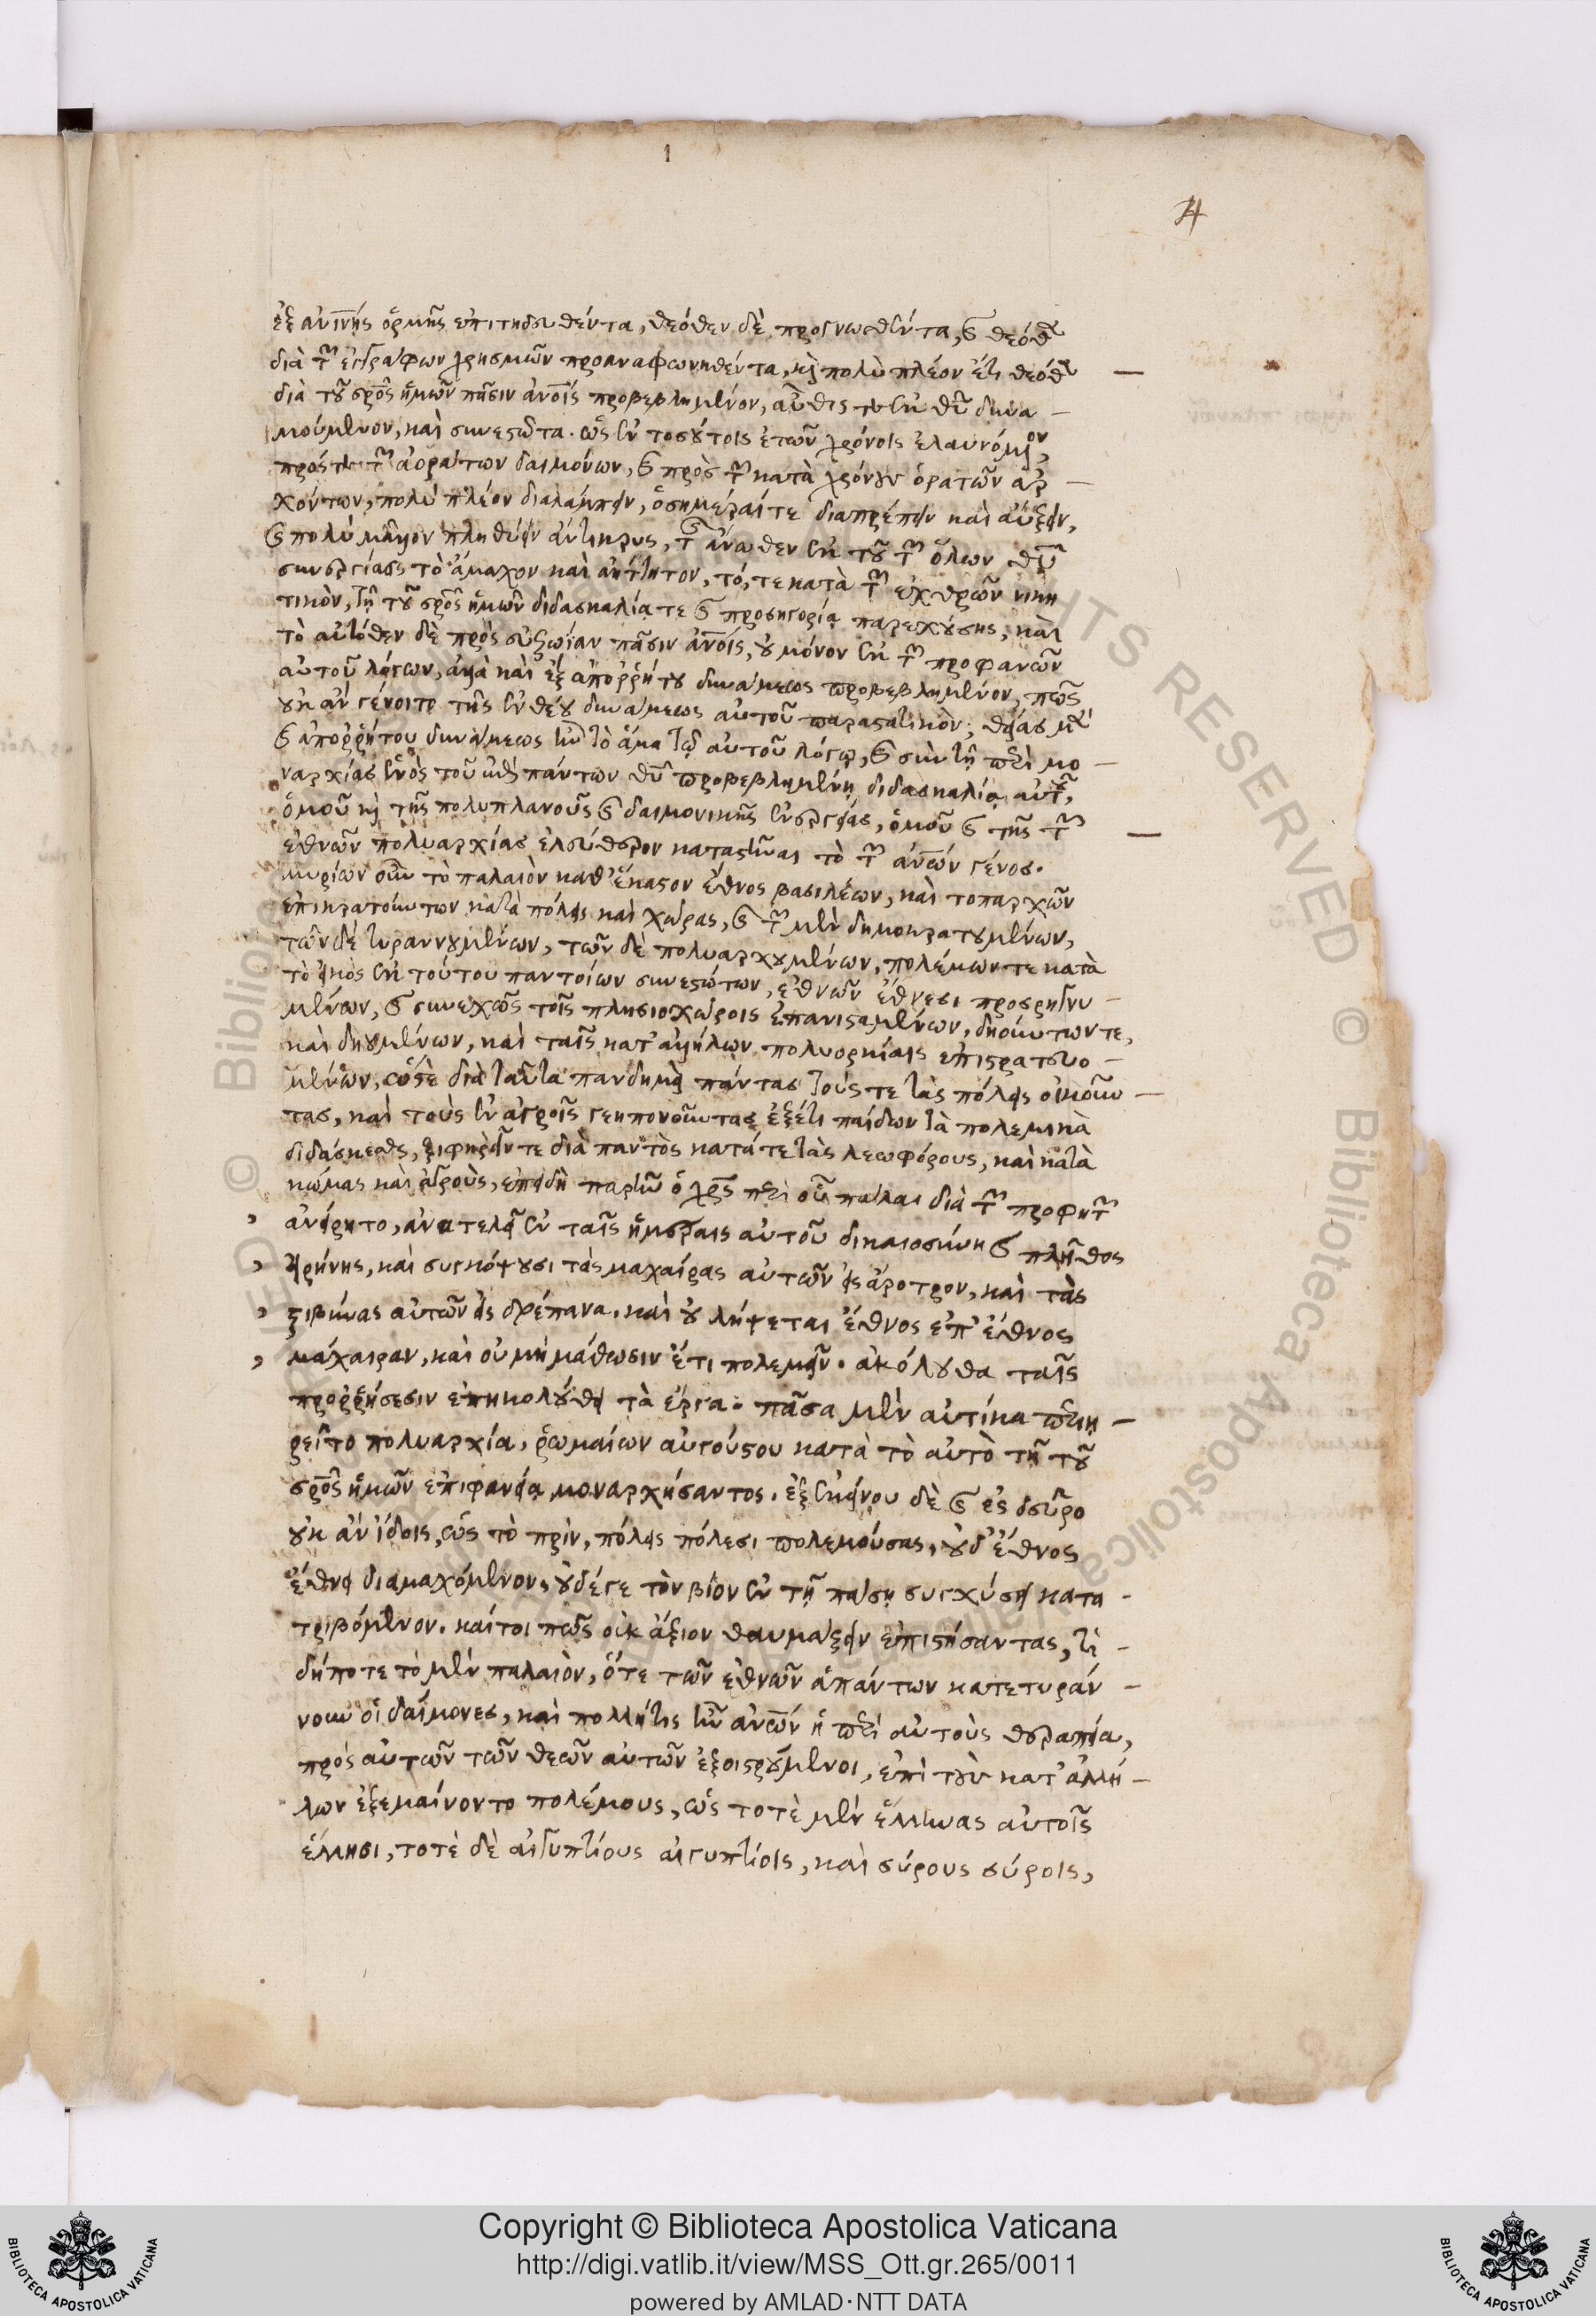 1
4
ἐξ ἀνι̅νης ὁρμῆς ἐπιτηδευθέντα, θεόθεν δὲ προγνωσθέντα, καὶ θεόθεν
διὰ τῶν ἐγγράφων χρησμῶν προαναφωνηθέντα, καὶ πολὺ πλέον ἔτι θεόθεν
διὰ τοῦ σρ̅ος ἡμῶν πᾶσιν ἀνοι̅ς προβεβλημένον, αὖθίς τε ἐκ θυ̅ δυνα-
μούμενον, καὶ συνεστῶτα. ὡς ἐν τοσούτοις ἐτῶν χρόνοις ἐλαυνόμενον
πρός τε τῶν ἀοράτων δαιμόνων, καὶ πρὸς τῶν κατὰ χρόνους ὁρατῶν ἀρ-
χόντων, πολὺ πλέον διαλάμπειν, ὁσημέραί τε διαπρέπειν καὶ αὔξειν,
καὶ πολὺ μᾶλλον πληθύειν ἄντικρυς, τῆς ἄνωθεν ἐκ τοῦ τῶν ὅλων θυ̅
συνεργίας τὸ ἄμαχον καὶ ἀήττητον, τό, τε κατὰ τῶν ἐχθρῶν νικη
τικὸν, τῇ τοῦ σρ̅ος ἡμῶν διδασκαλίᾳ τε καὶ προσηγορίᾳ παρεχούσης, καὶ
τὸ αὐτόθεν δὲ πρὸς εὐζωΐαν πᾶσιν ἀνοι̅ς, οὐ μόνον ἐκ τῶν προφανῶν
αὐτοῦ λόγων, ἀλλὰ καὶ ἐξ ἀπορρήτου δυνάμεως προβεβλημένον, πῶς
οὐκ ἂν γένοιτο τῆς ἐνθέου δυνάμεως αὐτοῦ παραστατικὸν; θείας μὲν
καὶ ἀπορρήτου δυνάμεως ἦν τὸ ἅμα τῷ αὐτοῦ λόγῳ, καὶ σὺν τῇ περὶ μο-
ναρχίας ἑνὸς τοῦ ἐπὶ πάντων θυ̅ προβεβλημένῃ διδασκαλίᾳ αὐτοῦ,
ὁμοῦ καὶ τῆς πολυπλανοῦς καὶ δαιμονικῆς ἐνεργείας, ὁμοῦ καὶ τῆς τῶν
ἐθνῶν πολυαρχίας ἐλεύθερον καταστῆναι τὸ τῶν ἀνω̅ν γένος.
μυρίων οὖν τὸ παλαιὸν καθ' ἕκαστον ἔθνος βασιλέων, καὶ τοπαρχῶν
ἐπικρατούντων κατὰ πόλεις καὶ χώρας, καὶ τῶν μὲν δημοκρατουμένων,
τῶν δὲ τυραννουμένων, τῶν δὲ πολυαρχουμένων, πολέμων τε κατὰ
τὸ εἰκὸς ἐκ τούτου παντοίων συνεστώτων, ἐθνῶν ἔθνεσι προσρηγνυ-
μένων, καὶ συνεχῶς τοῖς πλησιοχώροις ἐπανισταμένων, δῃούντων τε,
καὶ δῃουμένων, καὶ ταῖς κατ' ἀλλήλων πολυορκίαις ἐπιστρατευο-
μένων, ὥστε διὰ ταῦτα πανδημεὶ πάντας τούς τε τὰς πόλεις οἰκοῦν-
τας, καὶ τοὺς ἐν ἀγροῖς γεηπονοῦντας ἐξέτι παίδων τὰ πολεμικὰ
διδάσκεσθαι, ξιφηρεῖν τε διὰ παντὸς κατά τε τὰς λεωφόρους, καὶ κατὰ
κώμας καὶ ἀγροὺς, ἐπειδὴ παρῆν ὁ χς̅ περὶ οὗ πάλαι διὰ τῶν προφητῶν
ἀνείρητο, ἀνατελεῖ ἐν ταῖς ἡμέραις αὐτοῦ δικαιοσύνη καὶ πλῆθος
εἰρήνης, καὶ συγκόψουσι τὰς μαχαίρας αὐτῶν εἰς ἄροτρον, καὶ τὰς
ζιβύνας αὐτῶν εἰς δρέπανα. καὶ οὐ λήψεται ἔθνος ἐπ' ἔθνος
μάχαιραν, καὶ οὐ μὴ μάθωσιν ἔτι πολεμεῖν. ἀκόλουθα ταῖς
προρρήσεσιν ἐπηκολούθει τὰ ἔργα· πᾶσα μὲν αὐτίκα περιῃ-
ρεῖτο πολυαρχία, ῥωμαίων αὐγούστου κατὰ τὸ αὐτὸ τῇ τοῦ
σρ̅ος ἡμῶν ἐπιφανείᾳ μοναρχήσαντος. ἐξ ἐκείνου δὲ καὶ ἐς δεῦρο
οὐκ ἂν ἴδοις, ὡς τὸ πρὶν, πόλεις πόλεσι πολεμούσας, οὐδ' ἔθνος
ἔθνει διαμαχόμενον, οὐδέ γε τὸν βίον ἐν τῇ πάσῃ συγχύσει κατα-
τριβόμενον. καίτοι πῶς οὐκ ἄξιον θαυμάζειν ἐπιστήσαντας, τί-
δήποτε τὸ μὲν παλαιὸν, ὅτε τῶν ἐθνῶν ἁπάντων κατετυράν-
νουν οἱ δαίμονες, καὶ πολλή τις ἦν ἀνω̅ν ἡ περὶ αὐτοὺς θεραπεία,
πρὸς αὐτῶν τῶν θεῶν αὐτῶν ἐξοιστρούμενοι, ἐπὶ τοὺς κατ' ἀλλή-
λων ἐξεμαίνοντο πολέμους, ὡς τοτὲ μὲν ἕλληνας αὐτοῖς
ἕλλησι, τοτὲ δὲ αἰγυπτίους αἰγυπτίοις, καὶ σύρους σύροις,
Copyright © Biblioteca Apostolica Vaticana
http://digi.vatlib.it/view/MSS_Ott.gr.265/0011
powered by AMLAD·NTT DATA